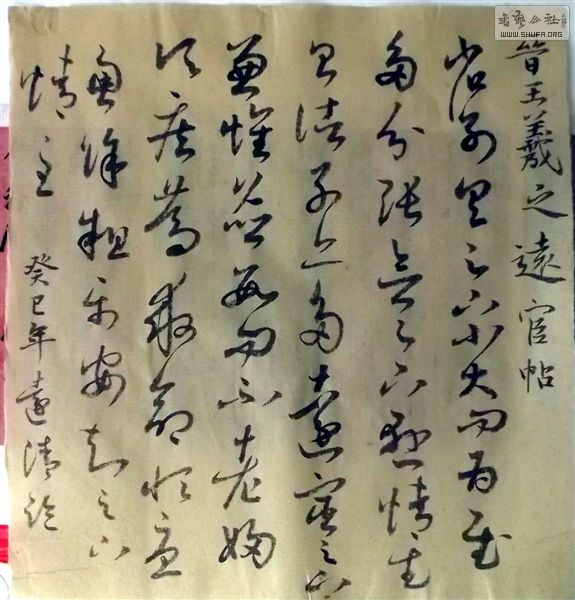 書藝公社
WWW.SHUFA.ORG
晉王羲之遠宦帖
省別具足下小大問為慰
多分張念足下懸情武
昌諸子亦多遠宦足下
兼懷並數問不老婦
頃疾篤救命恒憂
慮餘粗平安知足下
情至 癸巳年遠清臨